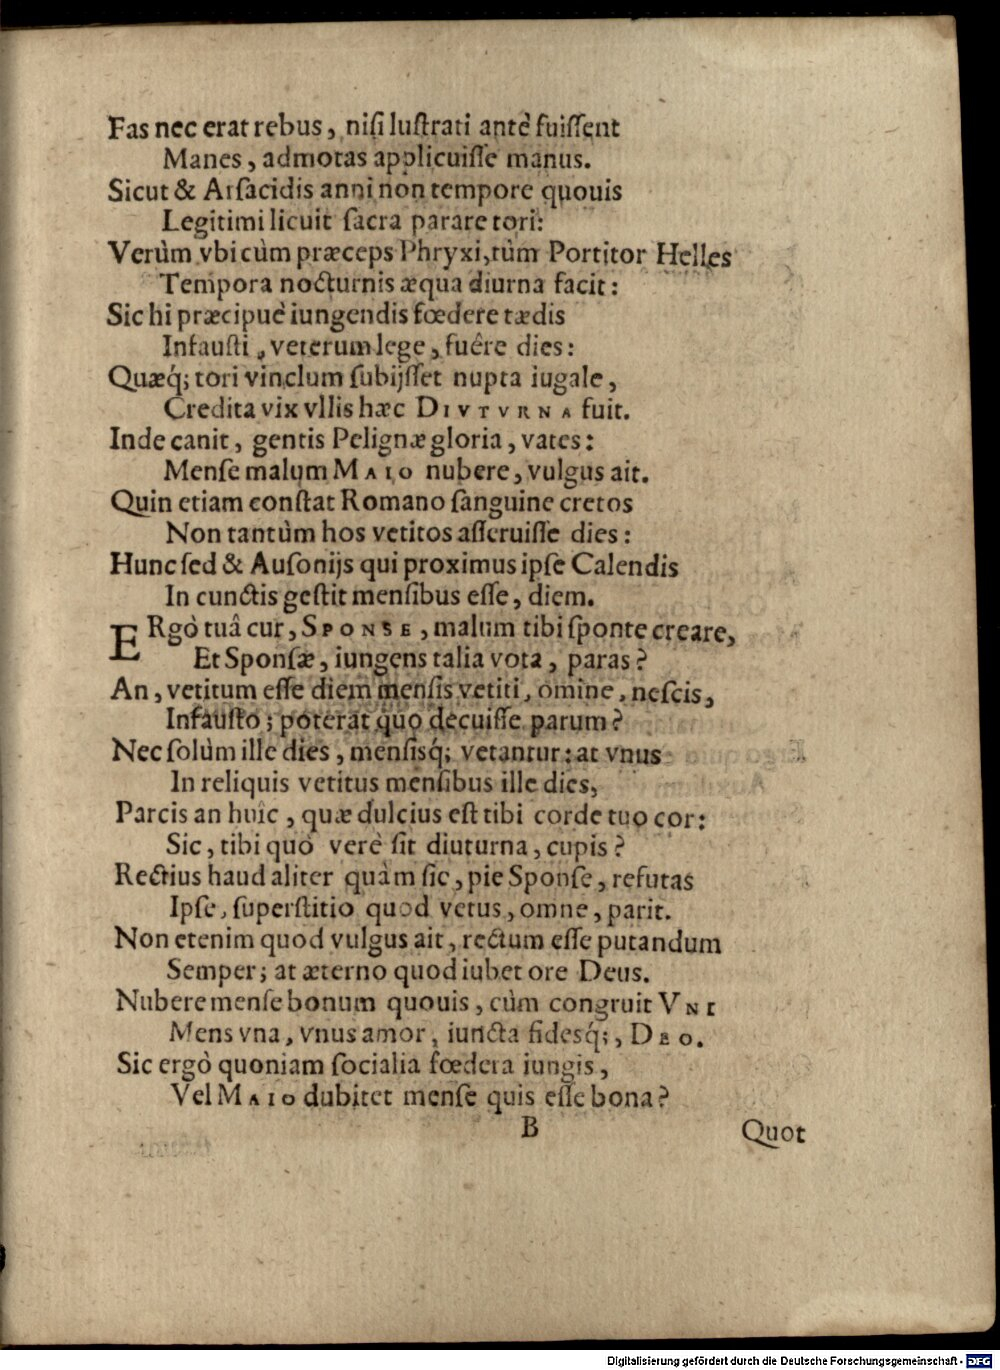 Fas nec erat rebus, niſi luſtrati antè fuiſſent
Manes, admotas applicuiſſe manus.
Sicut & Arſacidis anni non tempore quouis
Legitimi licuit ſacra parare tori:
Verùm vbi cùm præceps Phryxi, tùm Portitor Helles
Tempora nocturnis æqua diurna facit:
Sic hi præcipuè iungendis fœdere tædis
Infauſti, veterum lege, fuêre dies:
Quæq́; tori vinclum ſubijſſet nupta iugale,
Credita vix vllis hæc DIVTVRNA fuit.
Inde canit, gentis Pelignæ gloria, vates:
Menſe malum MAIO nubere, vulgus ait.
Quin etiam conſtat Romano ſanguine cretos
Non tantùm hos vetitos aſſeruiſſe dies:
Hunc ſed & Auſonijs qui proximus ipſe Calendis
In cunctis geſtit menſibus eſſe, diem.
ERgò tuâ cur, SPONSE, malum tibi ſponte creare,
Et Sponſæ, iungens talia vota, paras?
An, vetitum eſſe diem menſis vetiti, omine, neſcis,
Infauſto; poterat quo decuiſſe parum?
Nec ſolùm ille dies, menſisq́; vetantur: at vnus
In reliquis vetitus menſibus ille dies,
Parcis an huic, quæ dulcius eſt tibi corde tuo cor:
Sic, tibi quò verè ſit diuturna, cupis?
Rectius haud aliter quàm ſic, pie Sponſe, refutas
Ipſe, ſuperſtitio quod vetus, omne, parit.
Non etenim quod vulgus ait, rectum eſſe putandum
Semper; at æterno quod iubet ore Deus.
Nubere menſe bonum quouis, cùm congruit VNI
Mens vna, vnus amor, iuncta fidesq́;, DEO.
Sic ergò quoniam ſocialia fœdera iungis,
Vel MAIO dubitet menſe quis eſſe bona?
B
Quot
Digitalisierung gefördert durch die Deutsche Forschungsgemeinschaft - DFG